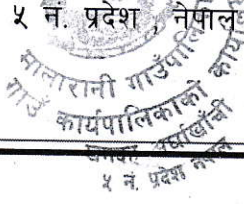 ५ नं. प्रदेश , नेपाल
मालारानी गाउँपालिका
गाउँ कार्यपालिकाको कार्या
५ नं. प्रदेश नेपाल